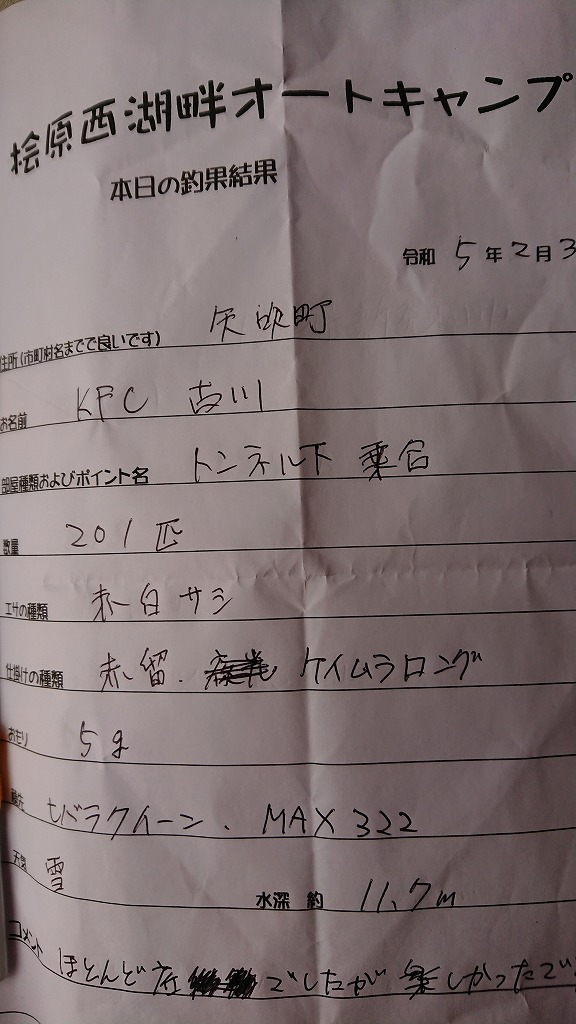 桧原西湖畔オートキャンプ
本日の釣果結果
令和 5年2月3
住所(市町村名までで良いです) 矢吹町
お名前 KFC 古川
部屋種類およびポイント名 トンネル下 乗合
数量 201匹
エサの種類 赤白サシ
仕掛けの種類 赤留. ケイムラロング
おもり 5g
穂先 セバラクイーン. MAX 322
天気 雪 水深 約 11.7m
コメント ほとんど底でしたが楽しかったで